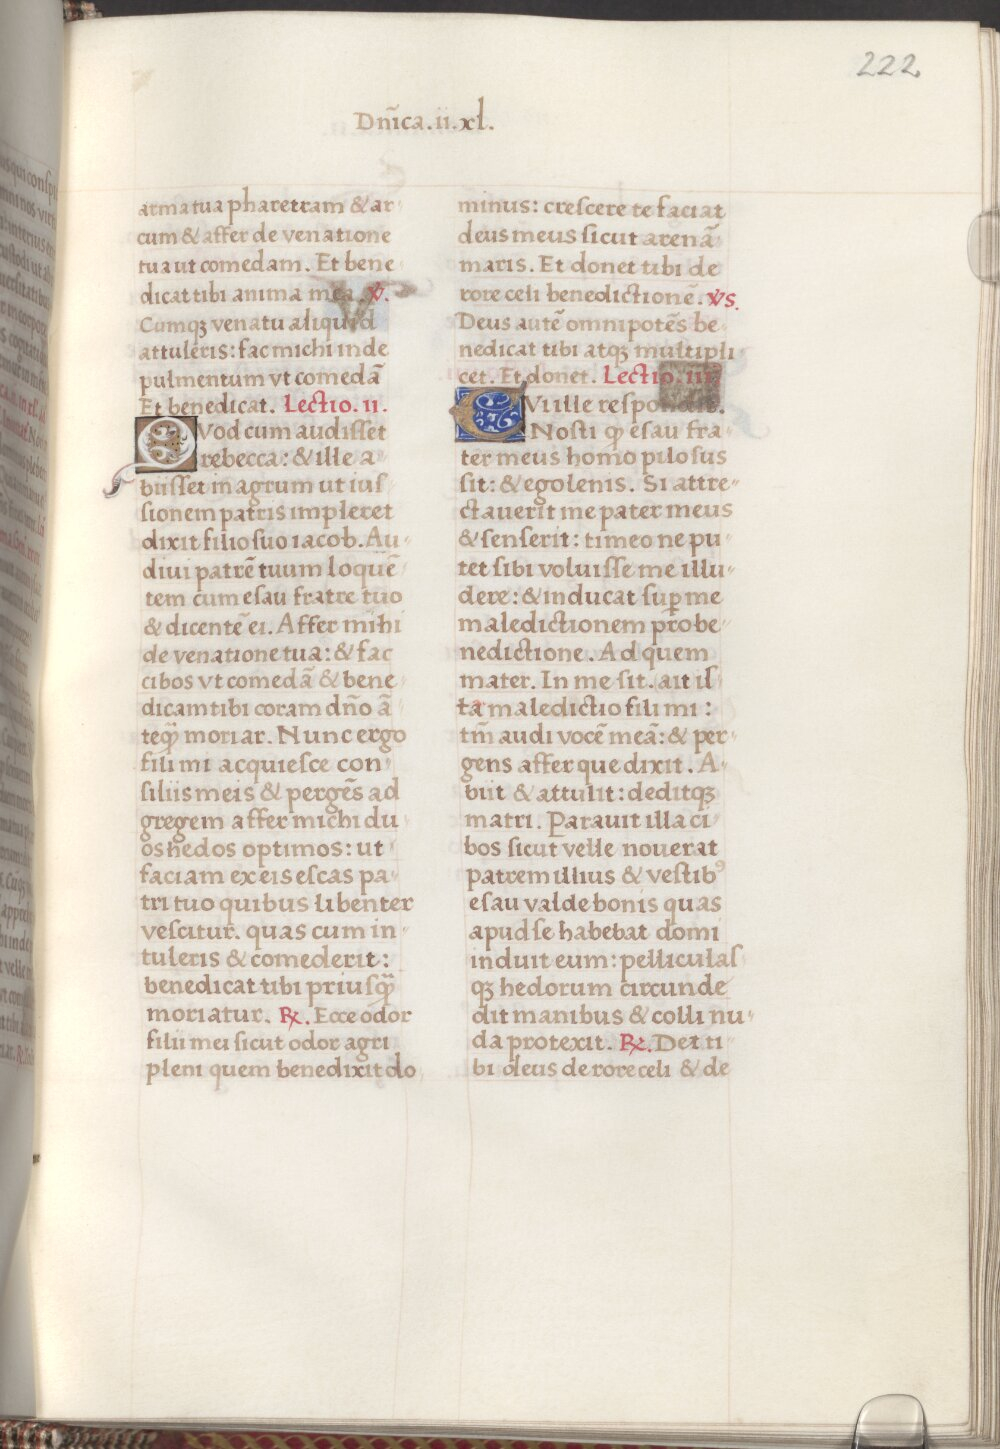 222
Dñica.ii.xl.
arma tua pharetram & ar
cum & affer de venatione
tua ut comedam. Et bene
dicat tibi anima mea. ℣.
Cumqꝫ venatu aliquid
attuleris: fac michi inde
pulmentum vt comedā
Et benedicat. Lectio. ii.
QVod cum audisset
rebecca: & ille a
biisset in agrum ut ius
sionem patris impleret
dixit filio suo iacob. Au
diui patrē tuum loquē
tem cum esau fratre tuo
& dicentē ei. Affer mihi
de venatione tua: & fac
cibos vt comedā & bene
dicam tibi coram dño ā
teꝙ̃ moriar. Nunc ergo
fili mi acquiesce con
siliis meis & pergēs ad
gregem affer michi du
os hedos optimos: ut
faciam ex eis escas pa
tri tuo quibus libenter
vescitur. quas cum in
tuleris & comederit:
benedicat tibi priusꝙ̃
moriatur. ℞. Ecce odor
filii mei sicut odor agri
pleni quem benedixit do
minus: crescere te faciat
deus meus sicut arenā
maris. Et donet tibi de
rore celi benedictionē. ℣s.
Deus autē omnipotēs be
nedicat tibi atqꝫ multipli
cet. Et donet. Lectio. iii.
CVi ille respondit.
Nosti ꝙ esau fra
ter meus homo pilosus
sit: & ego lenis. Si attre
ctauerit me pater meus
& senserit: timeo ne pu
tet sibi voluisse me illu
dere: & inducat suꝑ me
maledictionem pro be
nedictione. Ad quem
mater. In me sit. ait is
ta maledictio fili mi:
tm̄ audi vocē meā: & per
gens affer que dixit. A
biit & attulit: deditqꝫ
matri. Parauit illa ci
bos sicut velle nouerat
patrem illius & vestibꝰ
esau valde bonis quas
apud se habebat domi
induit eum: pelliculas
qꝫ hedorum circunde
dit manibus & colli nu
da protexit. ℞. Det ti
bi deus de rore celi & de